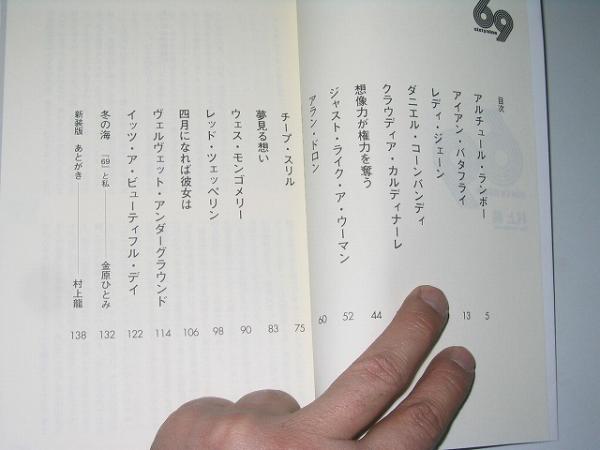 69
sixtynine
目次
アルチュール・ランボー 5
アイアン・バタフライ 13
レディ・ジェーン
ダニエル・コーンバンディ
クラウディア・カルディナーレ
想像力が権力を奪う 44
ジャスト・ライク・ア・ウーマン 52
アラン・ドロン 60
チープ・スリル 75
夢見る想い 83
ウェス・モンゴメリー 90
レッド・ツェッペリン 98
四月になれば彼女は 106
ヴェルヴェット・アンダーグラウンド 114
イッツ・ア・ビューティフル・デイ 122
冬の海 『69』と私 ――― 金原ひとみ 132
新装版 あとがき ――― 村上龍 138